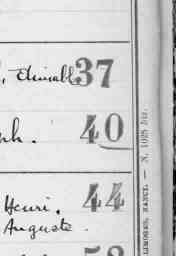 37
ph. 40
Henri, 44
Auguste.
LIMOGES, NANCY. — N. 1028 bis.